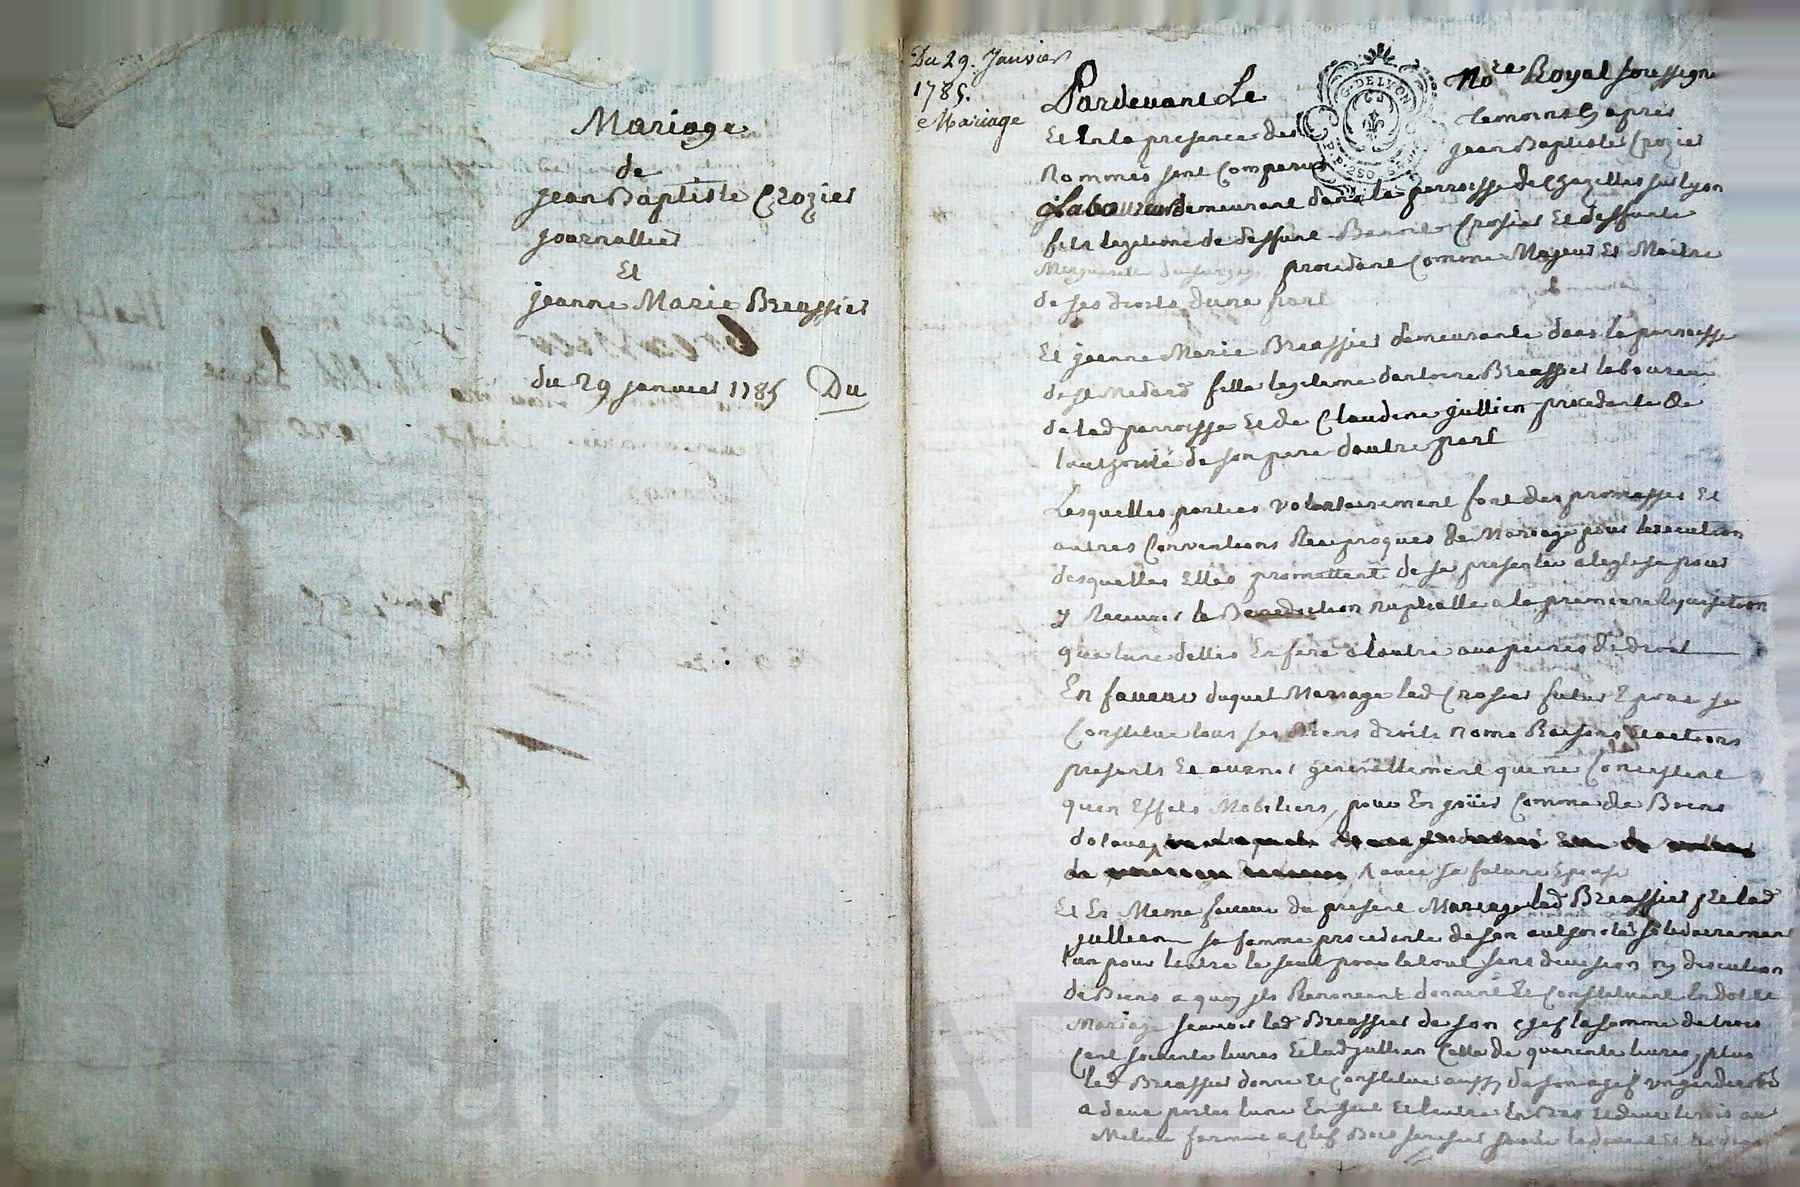 Mariage
de
jean Baptiste Crozier
journallier
Et
jeanne Marie Breassier
du 29 janvier 1785 Du
Du 29. Janvier
1785.
Mariage
G. DE LYON
Pardevant Le No.re Royal soussigne
Et En la presence des temoins cy apres
Nommes sont Comparus jean Baptiste Crozier
Laboureur demeurant dans la parroisse de Chazelles sur lyon
fils legitime de deffunt Benoit Crosier Et deffunte
Marguerite procedant Comme Majeur Et Maitre
de ses droits dune part
Et jeanne Marie Breassier demeurante dans la parroisse
de st Medard fille legitime dantoine Breassier laboureur
de lad parroisse Et de Claudine jullien procedante de
lauthorité de son pere dautre part
Lesquelles parties volontairement font des promesses Et
autres Conventions Reciproques de Mariage pour lexecution
desquelles Elles promettent de se presenter a leglise pour
y Recevoir la Benediction nuptialle a la premiere Requisition
que lune delles En fera a lautre aux peines de droit
En faveur duquel Mariage led Crosier futur Epoux se
Constitue tous ses Biens droits noms Raisons Et actions
presents Et avenir generallement que ne Consistent
quen Effets Mobiliers, pour En joüir Comme de Biens
dotaux
de avec sa future Epouse
Et En Meme faveur du present Mariage led Breassier Et lad
jullien sa femme procedante de son authorité solidairement
lun pour lautre le seul pour le tout sans division ny discution
de Biens a quoy ils Renoncent donnent Et Constituent En dot Et
Mariage scavoir led Breassier de son chef la somme de trois
Cent soixante livres Et lad jullien Celle de quarente livres, plus
led Breassier donne Et Constitue aussy de son chef un garderobe
a deux portes lune En haut Et lautre En Bas Et deux tirois au
Milieu fermant a Clef Bois
Pascal CHAREYRE